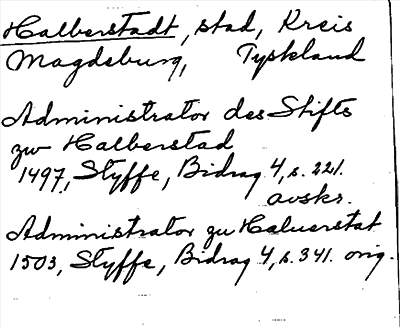 Halberstadt, stad, Kreis
Magdeburg, Tyskland
Administrator des Stifts
zw Halberstad
1497, Styffe, Bidrag 4, s. 221.
avskr.
Administrator zu Haluerstat
1503, Styffe, Bidrag 4, s. 341. orig.